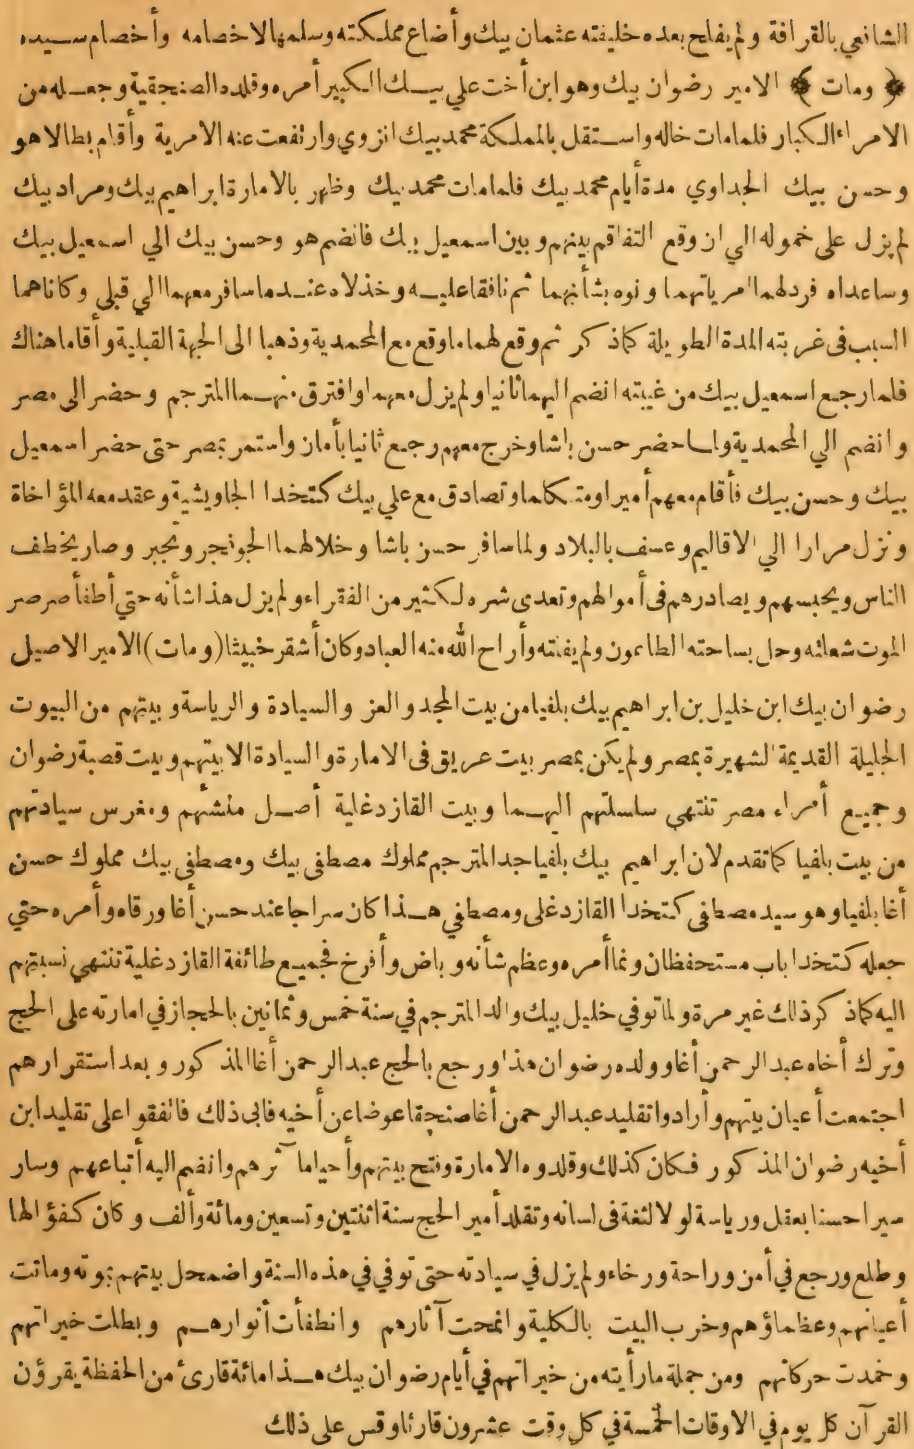 الشافعي بالقرافة ولم يفلح بعده خليفته عثمان بيك وأضاع مملكته وسلمها لاخصامه وأخصام سيده
﴿ ومات ﴾ الامير رضوان بيك وهو ابن أخت علي بيك الكبير أمره وقلده الصنجقية وجعله من
الامراء الكبار فلما مات خاله واستقل بالمملكة محمد بيك انزوي وارتفعت عنه الامرية وأقام بطالا هو
وحسن بيك الجداوي مدة أيام محمد بيك فلما مات محمد بيك وظهر بالامارة ابراهيم بيك ومراد بيك
لم يزل على خموله الي ان وقع التفاقم بينهم وبين اسمعيل بيك فانضم هو وحسن بيك الي اسمعيل بيك
وساعداه فرد لهما امرياتهما ونوه بشأنهما ثم نافقا عليه وخذلاه عند ما سافر معهما الي قبلي وكانا هما
السبب فى غربته المدة الطويلة كما ذكر ثم وقع لهما ما وقع مع المحمدية وذهبا الى الجهة القبلية وأقاما هناك
فلما رجع اسمعيل بيك من غيبته انضم اليهما ثانيا ولم يزل معهما وافترق منهما المترجم وحضر الى مصر
وانضم الي المحمدية ولما حضر حسن باشا وخرج معهم رجع ثانيا بأمان واستمر بمصر حتى حضر اسمعيل
بيك وحسن بيك فأقام معهم أميرا ومتكلما وتصادق مع علي بيك كتخدا الجاويشية وعقد معه المؤاخاة
ونزل مرارا الي الاقاليم وعسف بالبلاد ولما سافر حسن باشا وخلا لهما الجو تجبر وتجبر وصار يخطف
الناس ويحبسهم ويصادرهم فى أموالهم وتعدى شره لكثير من الفقراء ولم يزل هذا شأنه حتي أطفأ صرصر
الموت شعلته وحل بساحته الطاعون ولم يفلته وأراح الله منه العباد وكان أشقر خبيثا (ومات) الامير الاصيل
رضوان بيك ابن خليل بن ابراهيم بيك بلفيا من بيت المجد والعز والسيادة والرياسة وبيتهم من البيوت
الجليلة القديمة الشهيرة بمصر ولم يكن بمصر بيت عريق فى الامارة والسيادة الا بيتهم وبيت قصبة رضوان
وجميع أمراء مصر تنتهي سلسلتهم اليهما وبيت القازدغلية أصل منشئهم ومغرس سيادتهم
من بيت بلفيا كما تقدم لان ابراهيم بيك بلفيا جد المترجم مملوك مصطفى بيك ومصطفى بيك مملوك حسن
أغا بلفيا وهو سيد مصطفى كتخدا القازدغلى ومصطفي هذا كان سراجا عند حسن أغا ورقاه وأمره حتي
جعله كتخدا باب مستحفظان ونما أمره وعظم شأنه وباض وأفرخ فجميع طائفة القازدغلية تنتهي نسبتهم
اليه كما ذكر ذلك غير مرة ولما توفي خليل بيك والد المترجم في سنة خمس وثمانين بالحجاز في امارته على الحج
وترك أخاه عبد الرحمن أغا وولده رضوان هذا ورجع بالحج عبد الرحمن أغا المذكور وبعد استقرارهم
اجتمعت أعيان بيتهم وأرادوا تقليد عبد الرحمن أغا صنجقا عوضا عن أخيه فابى ذلك فاتفقوا على تقليد ابن
أخيه رضوان المذكور فكان كذلك وقلدوه الامارة وفتح بيتهم وأحيا ما آثرهم وانضم اليه أتباعهم وسار
سيرا حسنا بعقل ورياسة لولا لثغة فى لسانه وتقلد أمير الحج سنة اثنتين وتسعين ومائة وألف وكان كفؤا لها
وطلع ورجع في أمن وراحة ورخاء ولم يزل في سيادته حتى توفي في هذه السنة واضمحل بيتهم بموته وماتت
أعيانهم وعظماؤهم وخرب البيت بالكلية وانمحت آثارهم وانطفأت أنوارهم وبطلت خيراتهم
وخمدت حركاتهم ومن جملة ما رأيته من خيراتهم في أيام رضوان بيك هذا مائة قارئ من الحفظة يقرؤن
القرآن كل يوم في الاوقات الخمسة في كل وقت عشرون قارئا وقس على ذلك